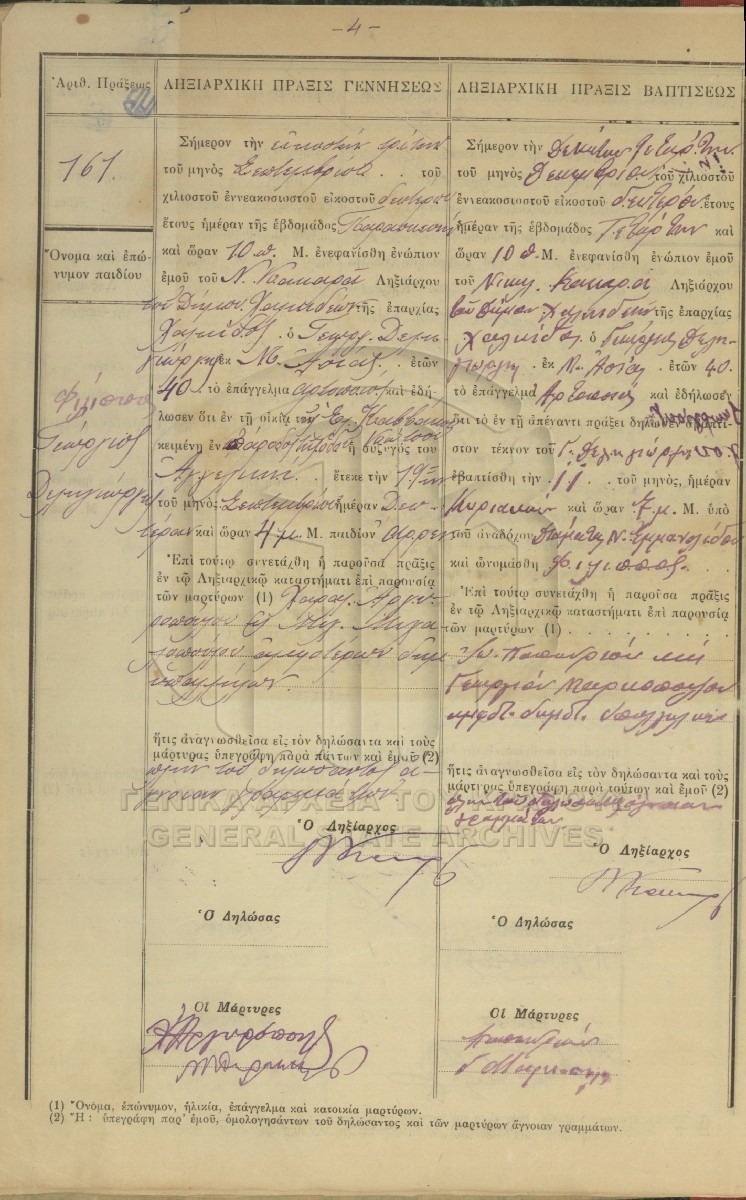 -4-
Ἀριθ. Πράξεως
161.
Ὄνομα καὶ ἐπώ-
νυμον παιδίου
Φίλιππος
Γεώργιος
Δεληγιώργη
ΛΗΞΙΑΡΧΙΚΗ ΠΡΑΞΙΣ ΓΕΝΝΗΣΕΩΣ
Σήμερον τὴν εἰκοστὴν τρίτην
τοῦ μηνὸς Σεπτεμβρίου . . τοῦ
χιλιοστοῦ ἐννεακοσιοστοῦ εἰκοστοῦ δευτέρου
ἔτους ἡμέραν τῆς ἑβδομάδος Παρασκευὴν
καὶ ὥραν 10 π. Μ. ἐνεφανίσθη ἐνώπιον
ἐμοῦ τοῦ Ν. Ληξιάρχου
τοῦ Δήμου Χαλκιδέων τῆς ἐπαρχίας
Χαλκίδος . ὁ Γεώργ. Δελη-
γιώργης ἐκ Μ. Ἀσίας . ἐτῶν
40 . τὸ ἐπάγγελμα ἀρτοποιὸς καὶ ἐδή-
λωσεν ὅτι ἐν τῇ οἰκίᾳ του
κειμένῃ ἐν ἡ σύζυγός του
Ἀγγελικὴ . ἔτεκε τὴν 19ην
τοῦ μηνὸς Σεπτεμβρίου ἡμέραν Δευ-
τέραν καὶ ὥραν 4 μ. Μ. παιδίον ἄρρεν
Ἐπὶ τούτῳ συνετάχθη ἡ παροῦσα πρᾶξις
ἐν τῷ Ληξιαρχικῷ καταστήματι ἐπὶ παρουσίᾳ
τῶν μαρτύρων (1) Χαραλ. Ἀργυ-
ροπούλου
ἀμφοτέρων δημ.
ὑπαλλήλων.
ἥτις ἀναγνωσθεῖσα εἰς τὸν δηλώσαντα καὶ τοὺς
μάρτυρας ὑπεγράφη παρὰ πάντων καὶ ἐμοῦ (2)
πλὴν τοῦ δηλώσαντος ἀ-
γνοοῦν γραμμάτων
Ὁ Ληξίαρχος
Ὁ Δηλώσας
Οἱ Μάρτυρες
ΛΗΞΙΑΡΧΙΚΗ ΠΡΑΞΙΣ ΒΑΠΤΙΣΕΩΣ
Σήμερον τὴν Δεκάτην Τετάρτην
τοῦ μηνὸς Δεκεμβρίου τοῦ χιλιοστοῦ
ἐννεακοσιοστοῦ εἰκοστοῦ δευτέρου ἔτους
ἡμέραν τῆς ἑβδομάδος Τετάρτην καὶ
ὥραν 10 π. Μ. ἐνεφανίσθη ἐνώπιον ἐμοῦ
τοῦ Νικολ. Ληξιάρχου
τοῦ Δήμου Χαλκιδέων τῆς ἐπαρχίας
Χαλκίδος ὁ Γεώργιος Δελη-
γιώργης . ἐκ Μ. Ἀσίας . ἐτῶν 40.
τὸ ἐπάγγελμα Ἀρτοποιὸς καὶ ἐδήλωσεν
ὅτι τὸ ἐν τῇ ἀπέναντι πράξει δηλωθὲν ἀβάπτι-
στον τέκνον τοῦ Γ. Δεληγιώργη
ἐβαπτίσθη τὴν 11 . τοῦ μηνός, ἡμέραν
Κυριακὴν καὶ ὥραν 7 μ. Μ. ὑπὸ
τοῦ ἀναδόχου Σταμάτη Ν. Ἐμμανουλίδου
καὶ ὠνομάσθη Φίλιππος.
Ἐπὶ τούτῳ συνετάχθη ἡ παροῦσα πρᾶξις
ἐν τῷ Ληξιαρχικῷ καταστήματι ἐπὶ παρουσίᾳ
τῶν μαρτύρων (1) . . . . . . . . . .
καὶ
Γεωργίου Μαρκοπούλου
ἥτις ἀναγνωσθεῖσα εἰς τὸν δηλώσαντα καὶ τοὺς
μάρτυρας ὑπεγράφη παρὰ τούτων καὶ ἐμοῦ (2)
πλὴν τοῦ δηλώσαντος
γραμμάτων
Ὁ Ληξίαρχος
Ὁ Δηλώσας
Οἱ Μάρτυρες
ΓΕΝΙΚΑ ΑΡΧΕΙΑ ΤΟΥ
GENERAL STATE ARCHIVES
(1) Ὄνομα, ἐπώνυμον, ἡλικία, ἐπάγγελμα καὶ κατοικία μαρτύρων.
(2) Ἢ : ὑπεγράφη παρ' ἐμοῦ, ὁμολογησάντων τοῦ δηλώσαντος καὶ τῶν μαρτύρων ἄγνοιαν γραμμάτων.